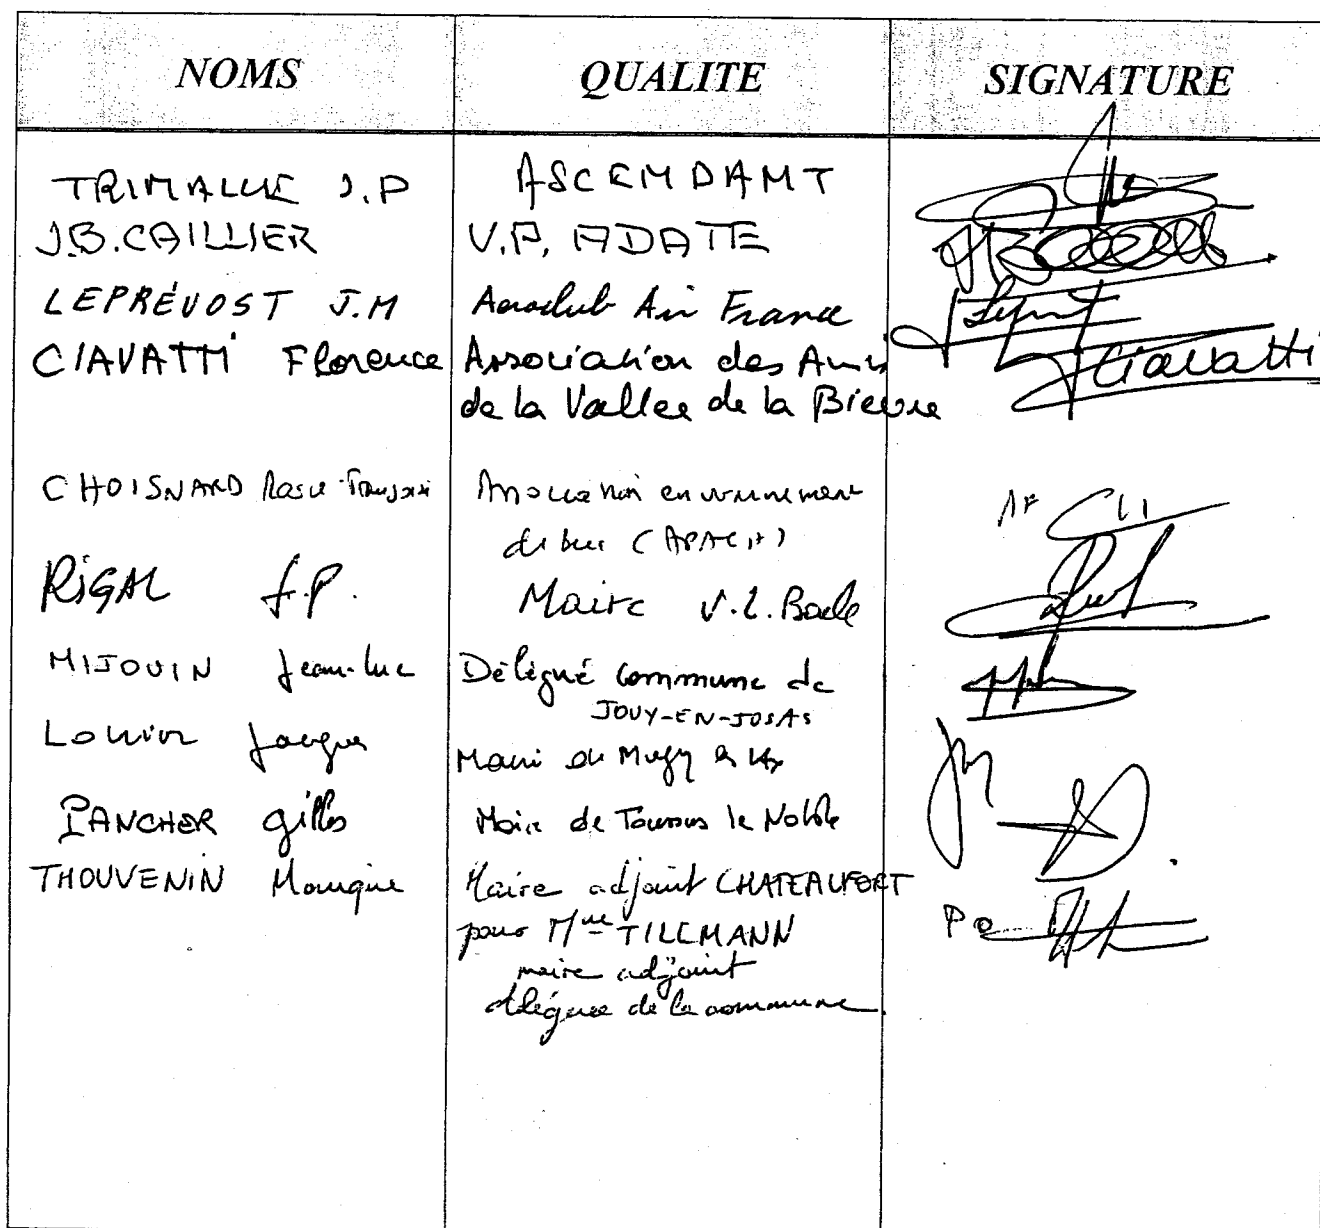 NOMS QUALITE SIGNATURE
TRIMAILLE J.P ASCENDANT
J.B. CAILLIER V.P. ADATE
LEPRÉVOST J.M Aeroclub Air France
CIAVATTI Florence Association des Amis Ciavatti
de la Vallee de la Bievre
CHOISNARD Association environnement
de buc (APACH)
RIGAL J.P. Maire V.L. Bacle
MIJOUIN Jean-luc Délégué Commune de
JOUY-EN-JOSAS
Jacques de
PANCHER Gilles Maire de Toussus le Noble
THOUVENIN Monique Maire adjoint CHATEAUFORT
pour Mme TILLMANN PO
maire adjoint
déléguée de la commune.